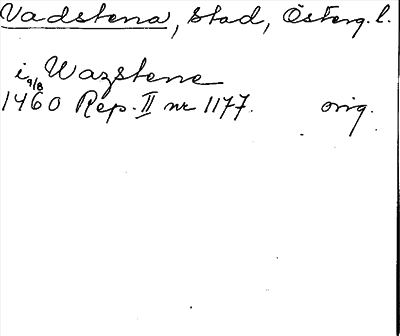 Vadstena, stad, Österg. l.
i Wazstene
9/8
1460 Rep. II nr 1177. orig.